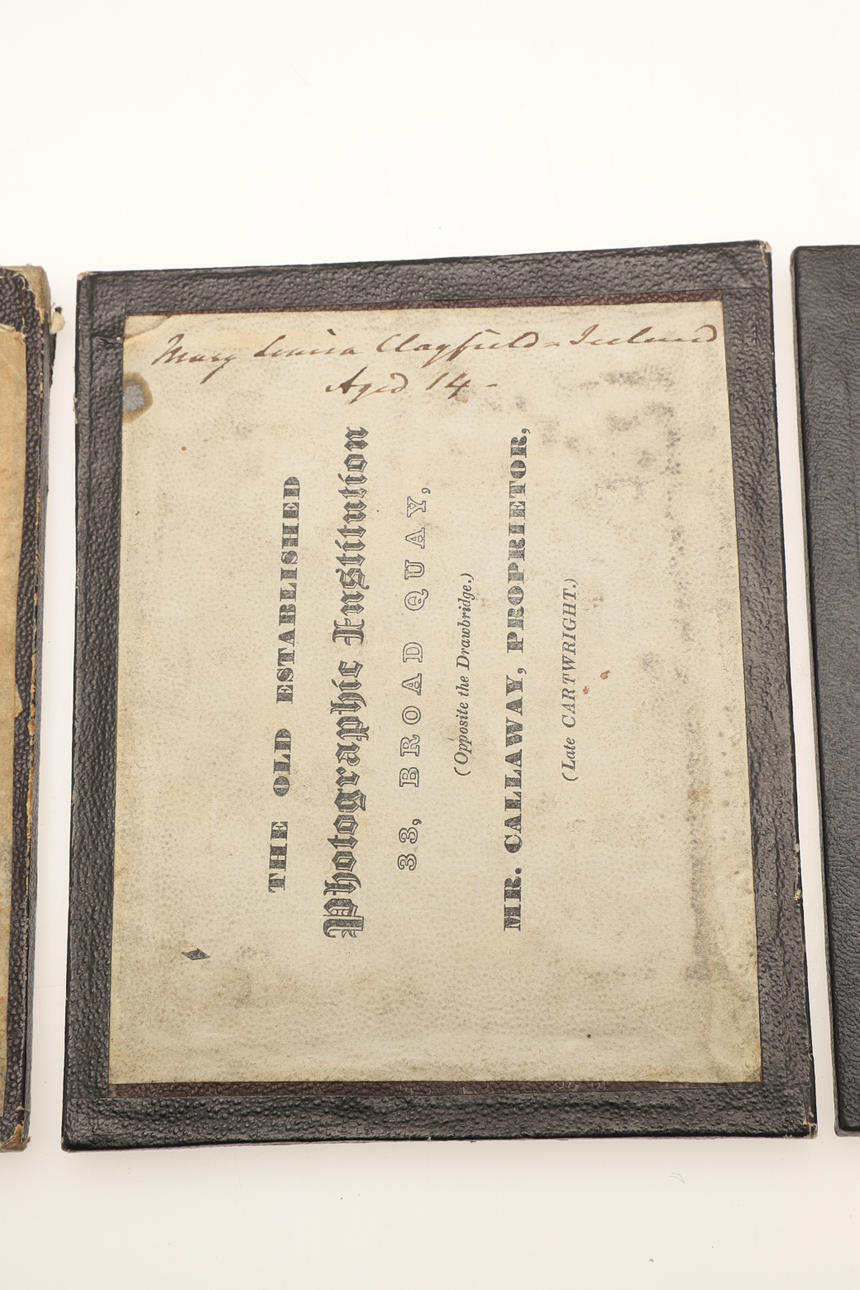 Mary Louisa Clayfield-Ireland
Aged 14-
THE OLD ESTABLISHED
Photographic Institution
33, BROAD QUAY,
(Opposite the Drawbridge.)
MR. CALLAWAY, PROPRIETOR,
(Late CARTWRIGHT.)